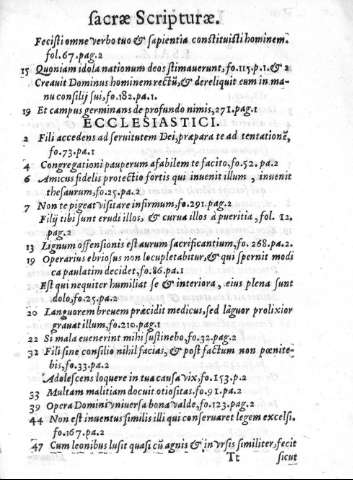 sacræ Scripturæ.
Fecisti omne verbo tuo & sapientia constituisti hominem.
fol.67.pag.2
15 Quoniam idola nationum deos æstimauerunt, fo.115.p.1.& 2
Creauit Dominus hominem rectū, & dereliquit eum in ma-
nu consilij sui, fo.182.pa.1.
19 Et campus germinans de profundo nimis, 271.pag.1
ECCLESIASTICI.
2 Fili accedens ad seruitutem Dei, præpara te ad tentationē,
fo.73.pa.1
4 Congregationi pauperum afabilem te facito, fo.52. pa.2
6 Amicus fidelis protectio fortis qui inuenit illum, inuenit
thesaurum, fo.25.pa.2
7 Non te pigeat visitare infirmum, fo.291.pag.2
Filij tibi sunt erudi illos, & curua illos à pueritia, fol. 12.
pag.2
13 Lignum offensionis est aurum sacrificantium, fo. 268.pa.2.
19 Operarius ebriosus non locupletabitur, & qui spernit modi
ca paulatim decidet, fo.86.pa.1
Est qui nequiter humiliat se & interiora, eius plena sunt
dolo, fo.25.pa.2
20 Languorem breuem præcidit medicus, sed lāguor prolixior
grauat illum, fo.210.pag.1
22 Si mala euenerint mihi sustinebo, fo.32.pag.2
32 Fili sine consilio nihil facias, & post factum non pœnite-
bis, fo.33.pa.2
Adolescens loquere in tua causa vix, fo.153.p.2
33 Multam malitiam docuit otiositas, fo.91.pa.2
39 Opera Domini vniuersa bona valde, fo.123.pag.2
44 Non est inuentus similis illi qui conseruaret legem excelsi.
fo.167.pa.2
47 Cum leonibus lusit quasi cū agnis & in vrsis similiter, fecit
Tt sicut